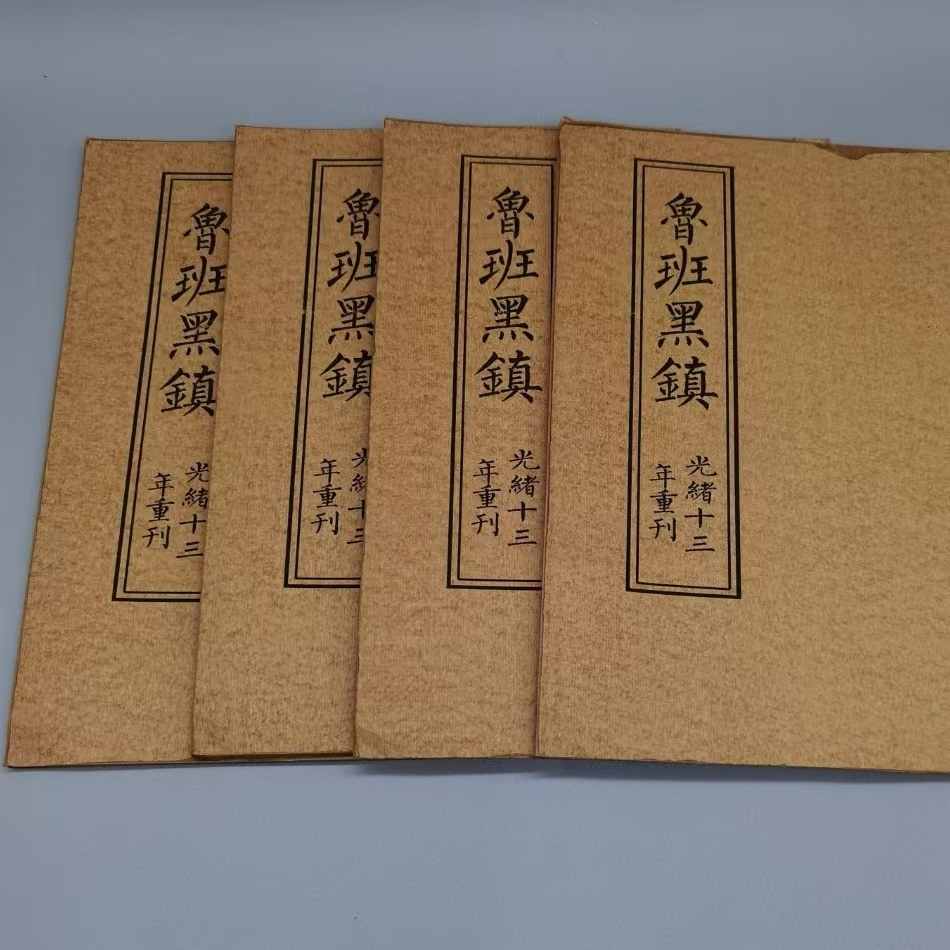 魯班黑鎮
光緒十三
年重刊
魯班黑鎮
光緒十三
年重刊
魯班黑鎮
光緒十三
年重刊
魯班黑鎮
光緒十三
年重刊